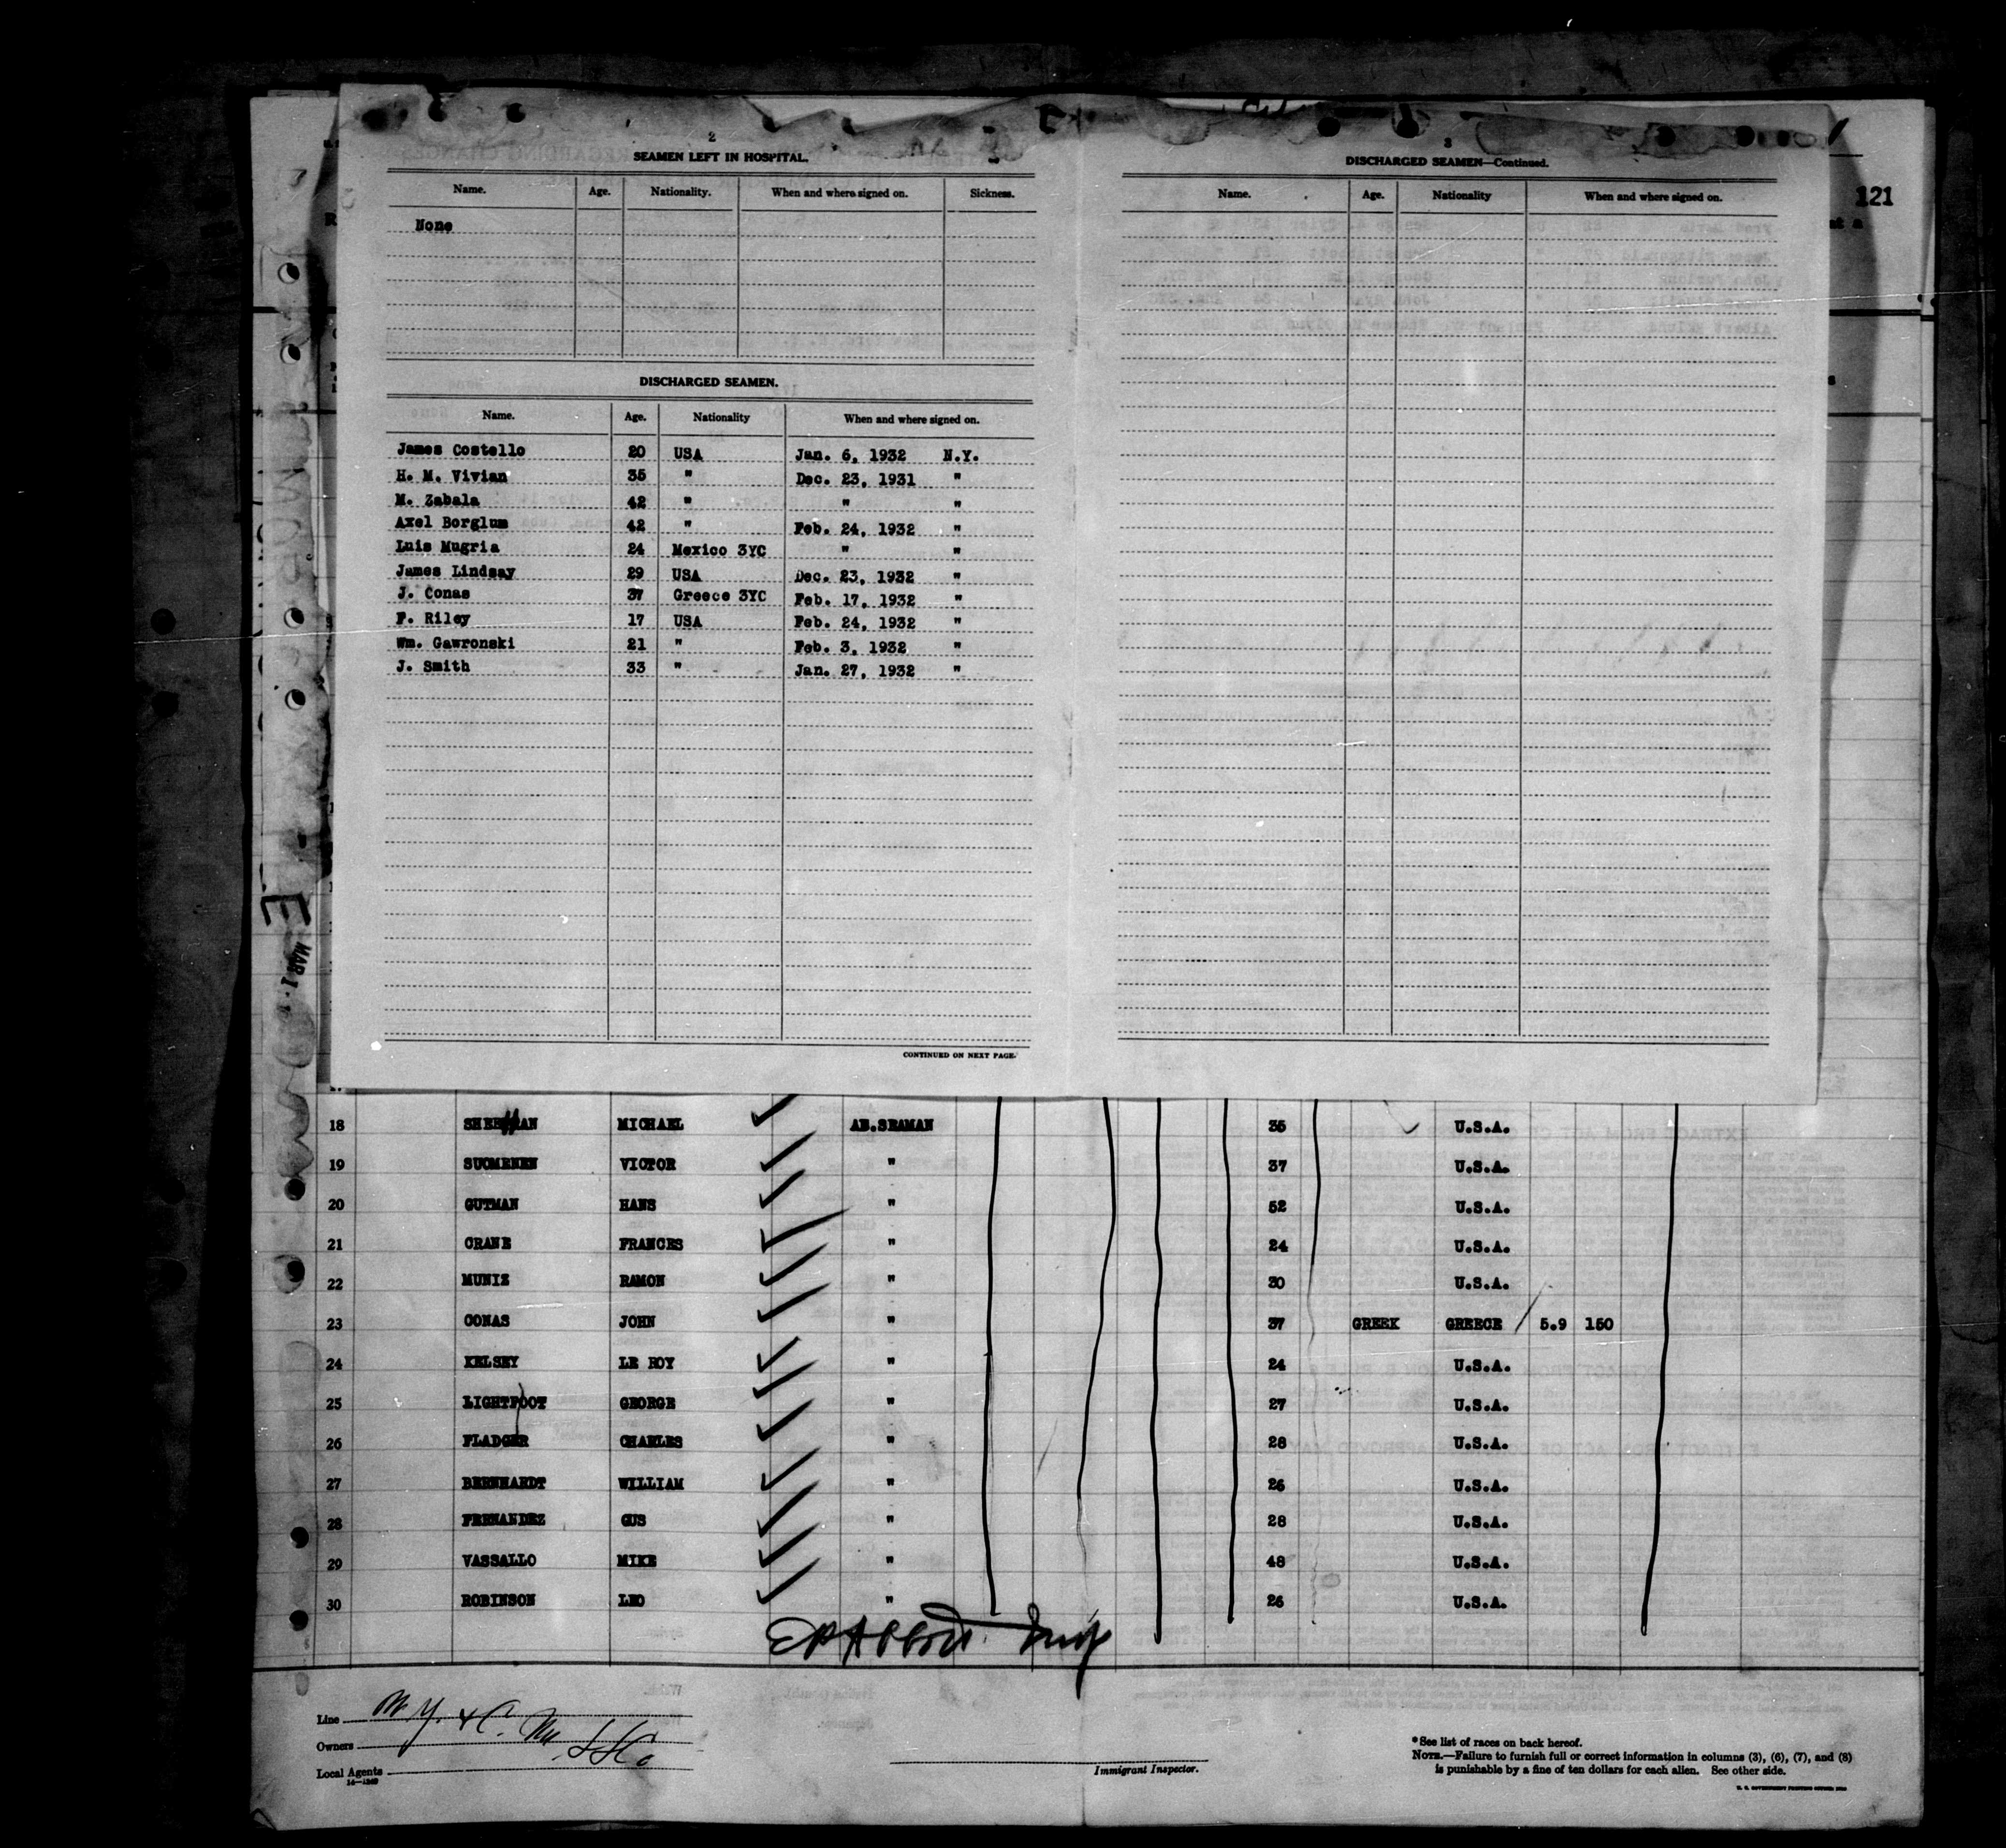 2
SEAMEN LEFT IN HOSPITAL.
Name. Age. Nationality. When and where signed on. Sickness.
None
DISCHARGED SEAMEN.
Name. Age. Nationality When and where signed on.
James Costello 20 USA Jan. 6, 1932 N.Y.
H. M. Vivian 35 " Dec. 23, 1931 "
M. Zabala 42 " " "
Axel Borglum 42 " Feb. 24, 1932 "
Luis Mugria 24 Mexico 3YC " "
James Lindsay 29 USA Dec. 23, 1932 "
J. Conas 37 Greece 3YC Feb. 17, 1932 "
F. Riley 17 USA Feb. 24, 1932 "
Wm. Gawronski 21 " Feb. 3, 1932 "
J. Smith 33 " Jan. 27, 1932 "
CONTINUED ON NEXT PAGE.
3
DISCHARGED SEAMEN—Continued.
Name. Age. Nationality When and where signed on.
121
E
MAR 1
18 MICHAEL AB.SEAMAN 35 U.S.A.
19 SUOMENEN VICTOR " 37 U.S.A.
20 GUTMAN HANS " 52 U.S.A.
21 CRANE FRANCES " 24 U.S.A.
22 MUNIZ RAMON " 30 U.S.A.
23 CONAS JOHN " 37 GREEK GREECE 5.9 150
24 KELSEY LE ROY " 24 U.S.A.
25 LIGHTFOOT GEORGE " 27 U.S.A.
26 FLADGER CHARLES " 28 U.S.A.
27 BERNHARDT WILLIAM " 26 U.S.A.
28 FERNANDEZ GUS " 28 U.S.A.
29 VASSALLO MIKE " 48 U.S.A.
30 ROBINSON LEO " 26 U.S.A.
Line N.Y. & C. M
Owners SSCo
Local Agents
Immigrant Inspector.
*See list of races on back hereof.
NOTE.—Failure to furnish full or correct information in columns (3), (6), (7), and (8)
is punishable by a fine of ten dollars for each alien. See other side.